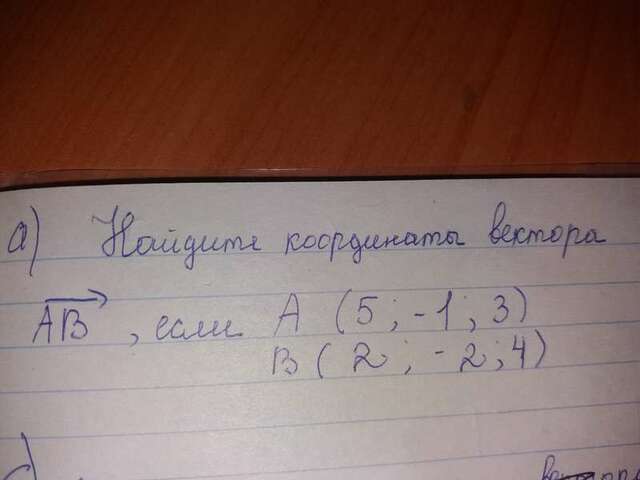 а) Найдите координаты вектора
AB, если A (5; -1; 3)
B (2; -2; 4)